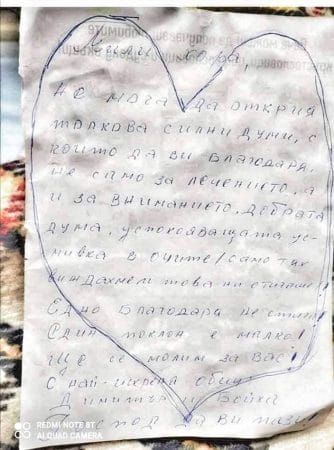 Мили хора,
Не мога да открия
толкова силни думи, с
които да ви благодаря,
не само за лечението, а
и за вниманието, добрата
дума, успокояващата ус-
мивка в очите/само так
виждахме/. това ни стигаше!
Едно благодаря не стига!
Един поклон е малко!
Ще се молим за Вас!
С най-искрена обич
Димитър и Бойка
Господ да ви пази!
REDMI NOTE 8T
AI QUAD CAMERA